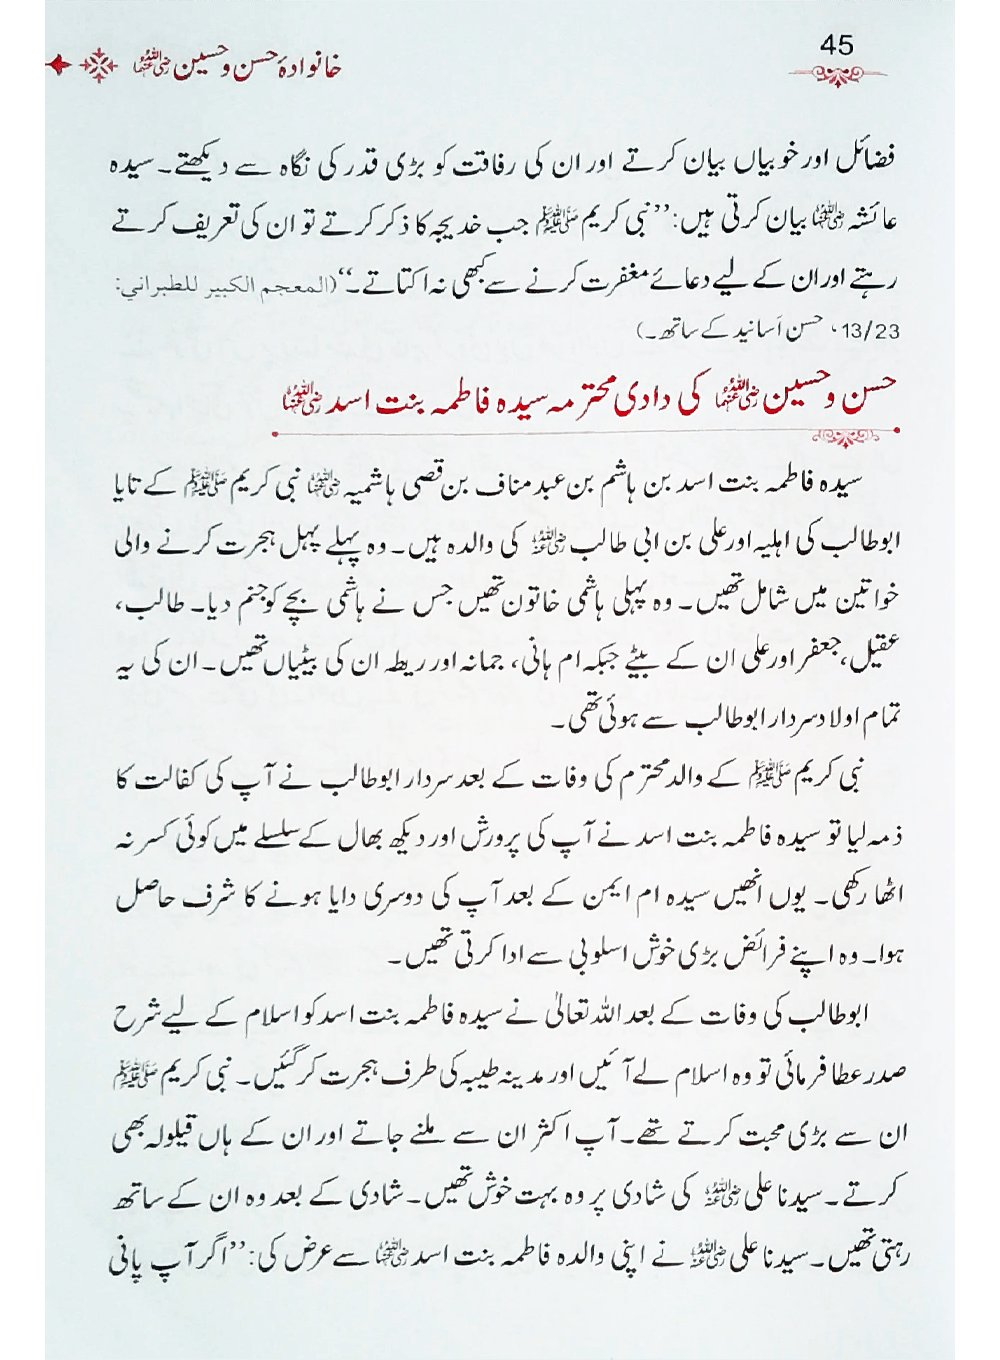 45
خانوادۂ حسن و حسین رضی اللہ عنہما
فضائل اور خوبیاں بیان کرتے اور ان کی رفاقت کو بڑی قدر کی نگاہ سے دیکھتے۔ سیدہ
عائشہ رضی اللہ عنہا بیان کرتی ہیں: ’’نبی کریم ﷺ جب خدیجہ کا ذکر کرتے تو ان کی تعریف کرتے
رہتے اور ان کے لیے دعائے مغفرت کرنے سے کبھی نہ اکتاتے۔‘‘ (المعجم الکبیر للطبراني:
13/23، حسن اَسانید کے ساتھ۔)
حسن و حسین رضی اللہ عنہما کی دادی محترمہ سیدہ فاطمہ بنت اسد رضی اللہ عنہا
سیدہ فاطمہ بنت اسد بن ہاشم بن عبد مناف بن قصی ہاشمیہ رضی اللہ عنہا نبی کریم ﷺ کے تایا
ابوطالب کی اہلیہ اور علی بن ابی طالب رضی اللہ عنہ کی والدہ ہیں۔ وہ پہلے پہل ہجرت کرنے والی
خواتین میں شامل تھیں۔ وہ پہلی ہاشمی خاتون تھیں جس نے ہاشمی بچے کو جنم دیا۔ طالب،
عقیل، جعفر اور علی ان کے بیٹے جبکہ ام ہانی، جمانہ اور ریطہ ان کی بیٹیاں تھیں۔ ان کی یہ
تمام اولاد سردار ابوطالب سے ہوئی تھی۔
نبی کریم ﷺ کے والد محترم کی وفات کے بعد سردار ابوطالب نے آپ کی کفالت کا
ذمہ لیا تو سیدہ فاطمہ بنت اسد نے آپ کی پرورش اور دیکھ بھال کے سلسلے میں کوئی کسر نہ
اٹھا رکھی۔ یوں انھیں سیدہ ام ایمن کے بعد آپ کی دوسری دایا ہونے کا شرف حاصل
ہوا۔ وہ اپنے فرائض بڑی خوش اسلوبی سے ادا کرتی تھیں۔
ابوطالب کی وفات کے بعد اللہ تعالیٰ نے سیدہ فاطمہ بنت اسد کو اسلام کے لیے شرح
صدر عطا فرمائی تو وہ اسلام لے آئیں اور مدینہ طیبہ کی طرف ہجرت کر گئیں۔ نبی کریم ﷺ
ان سے بڑی محبت کرتے تھے۔ آپ اکثر ان سے ملنے جاتے اور ان کے ہاں قیلولہ بھی
کرتے۔ سیدنا علی رضی اللہ عنہ کی شادی پر وہ بہت خوش تھیں۔ شادی کے بعد وہ ان کے ساتھ
رہتی تھیں۔ سیدنا علی رضی اللہ عنہ نے اپنی والدہ فاطمہ بنت اسد رضی اللہ عنہا سے عرض کی: ’’اگر آپ پانی